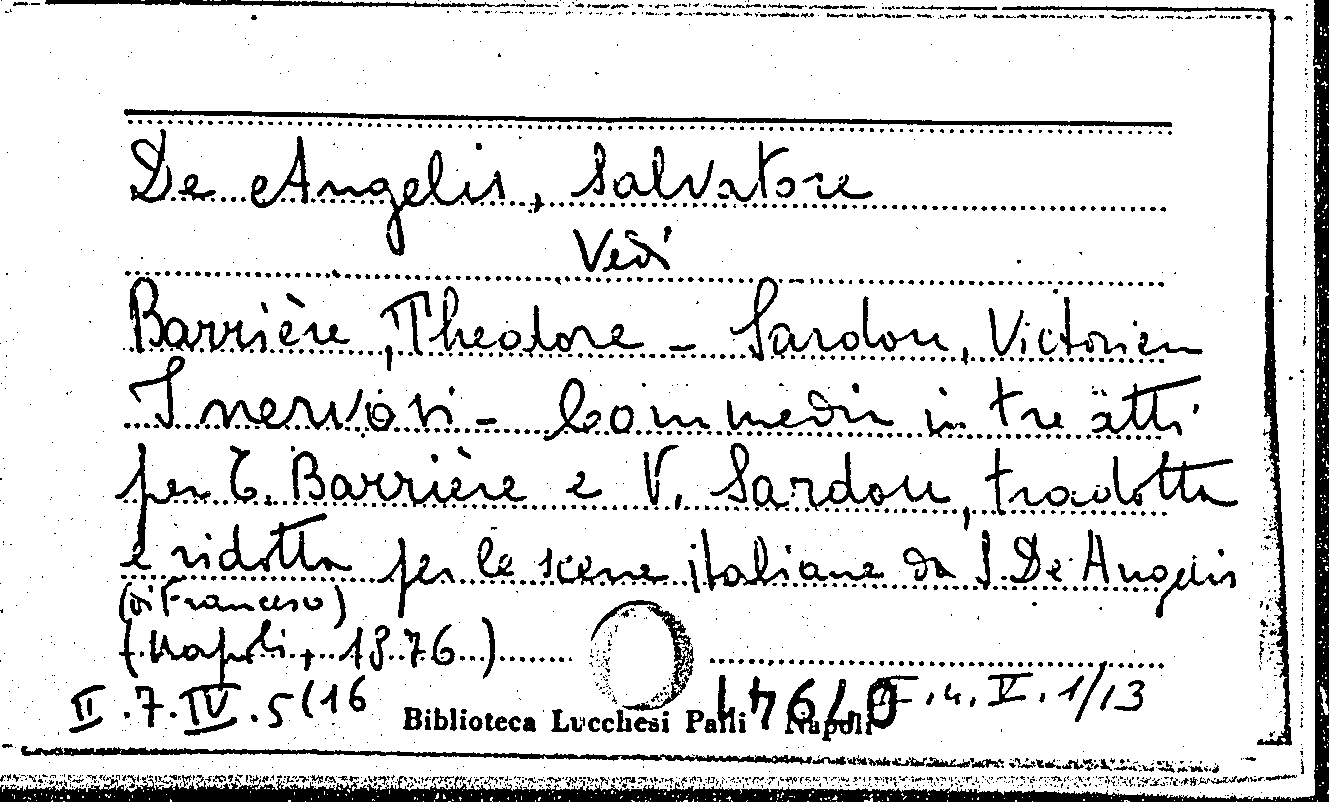 De Angelis, Salvatore
Vedi
Barrière, Theodore - Sardou, Victorien
I nervosi - Commedia in tre atti
per T. Barrière e V. Sardou, tradotta
e ridotta per le scene italiane da S. De Angelis
(di Francesco)
(Napoli, 1876)
II.7.IV.5(16
Biblioteca Lucchesi Palli Napoli
.4.V.1/13